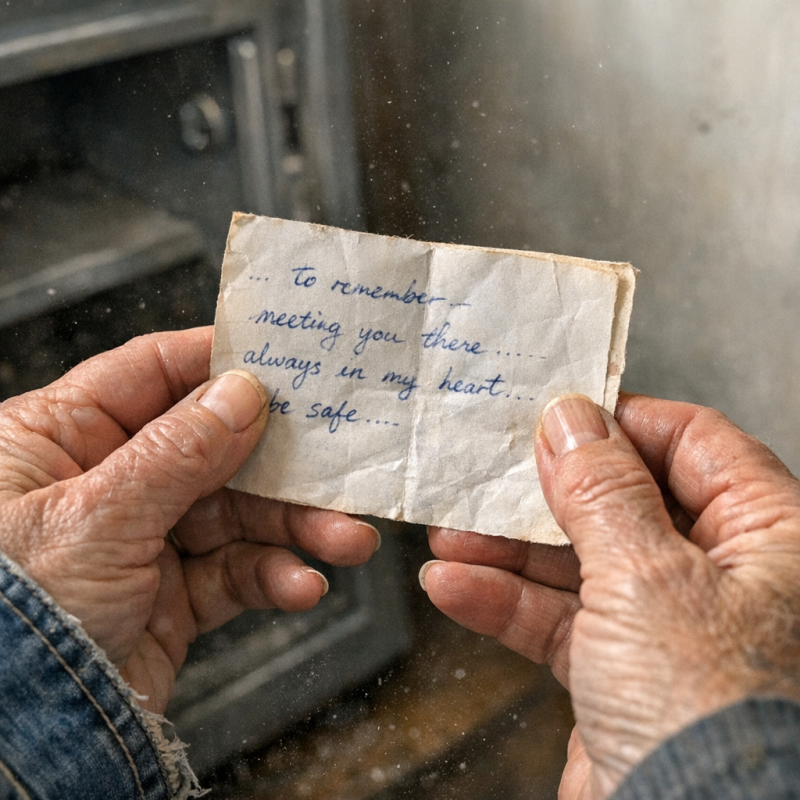 ... to remember..
meeting you there.....
always in my heart...
be safe....